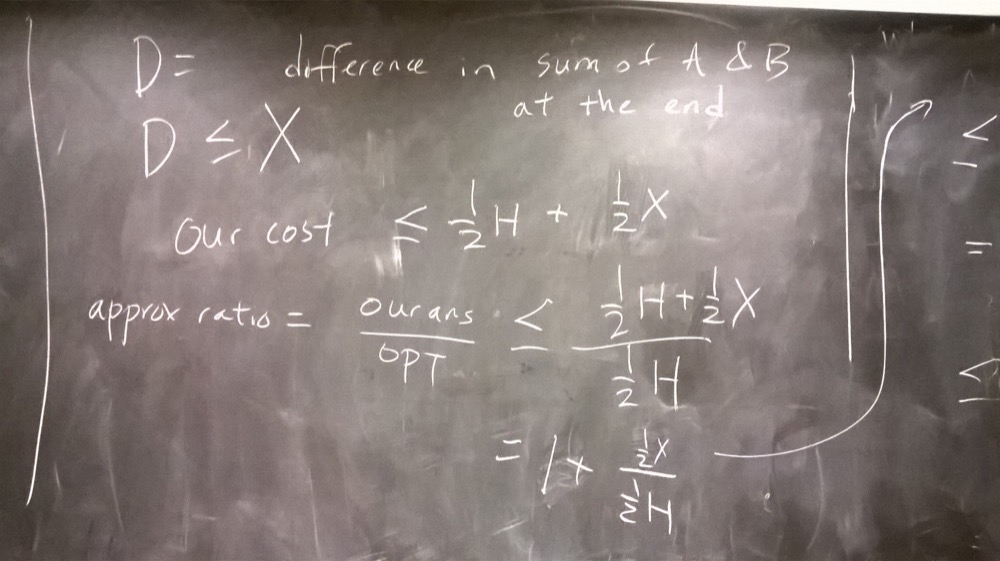 D = difference in sum of A & B
at the end
D ≤ X
Our cost ≤ 1/2 H + 1/2 X
approx ratio = our ans / OPT ≤ (1/2 H + 1/2 X) / (1/2 H)
= 1 + (1/2 X) / (1/2 H)
≤
=
≤